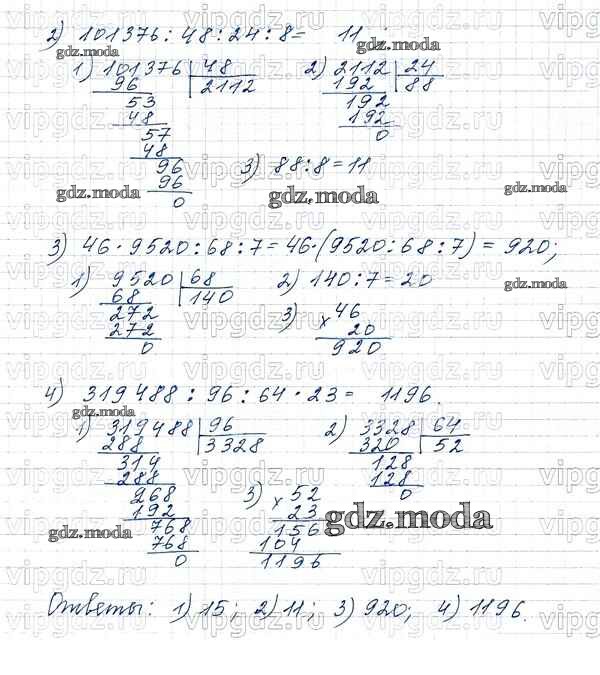 2) 101376 : 48 : 24 : 8 = 11
1) 101376 | 48 2) 2112 | 24
96 2112 192 88
53 192
48 192
57 0
48
96 3) 88 : 8 = 11
96
0
3) 46 · 9520 : 68 : 7 = 46 · (9520 : 68 : 7) = 920;
1) 9520 | 68 2) 140 : 7 = 20
68 140
272 3) × 46
272 20
0 920
4) 319488 : 96 : 64 · 23 = 1196.
1) 319488 | 96 2) 3328 | 64
288 3328 320 52
314 128
288 128
268 0
192 3) × 52
768 23
768 156
0 104
1196
Ответы: 1) 15; 2) 11; 3) 920; 4) 1196.
gdz.moda
vipgdz.ru